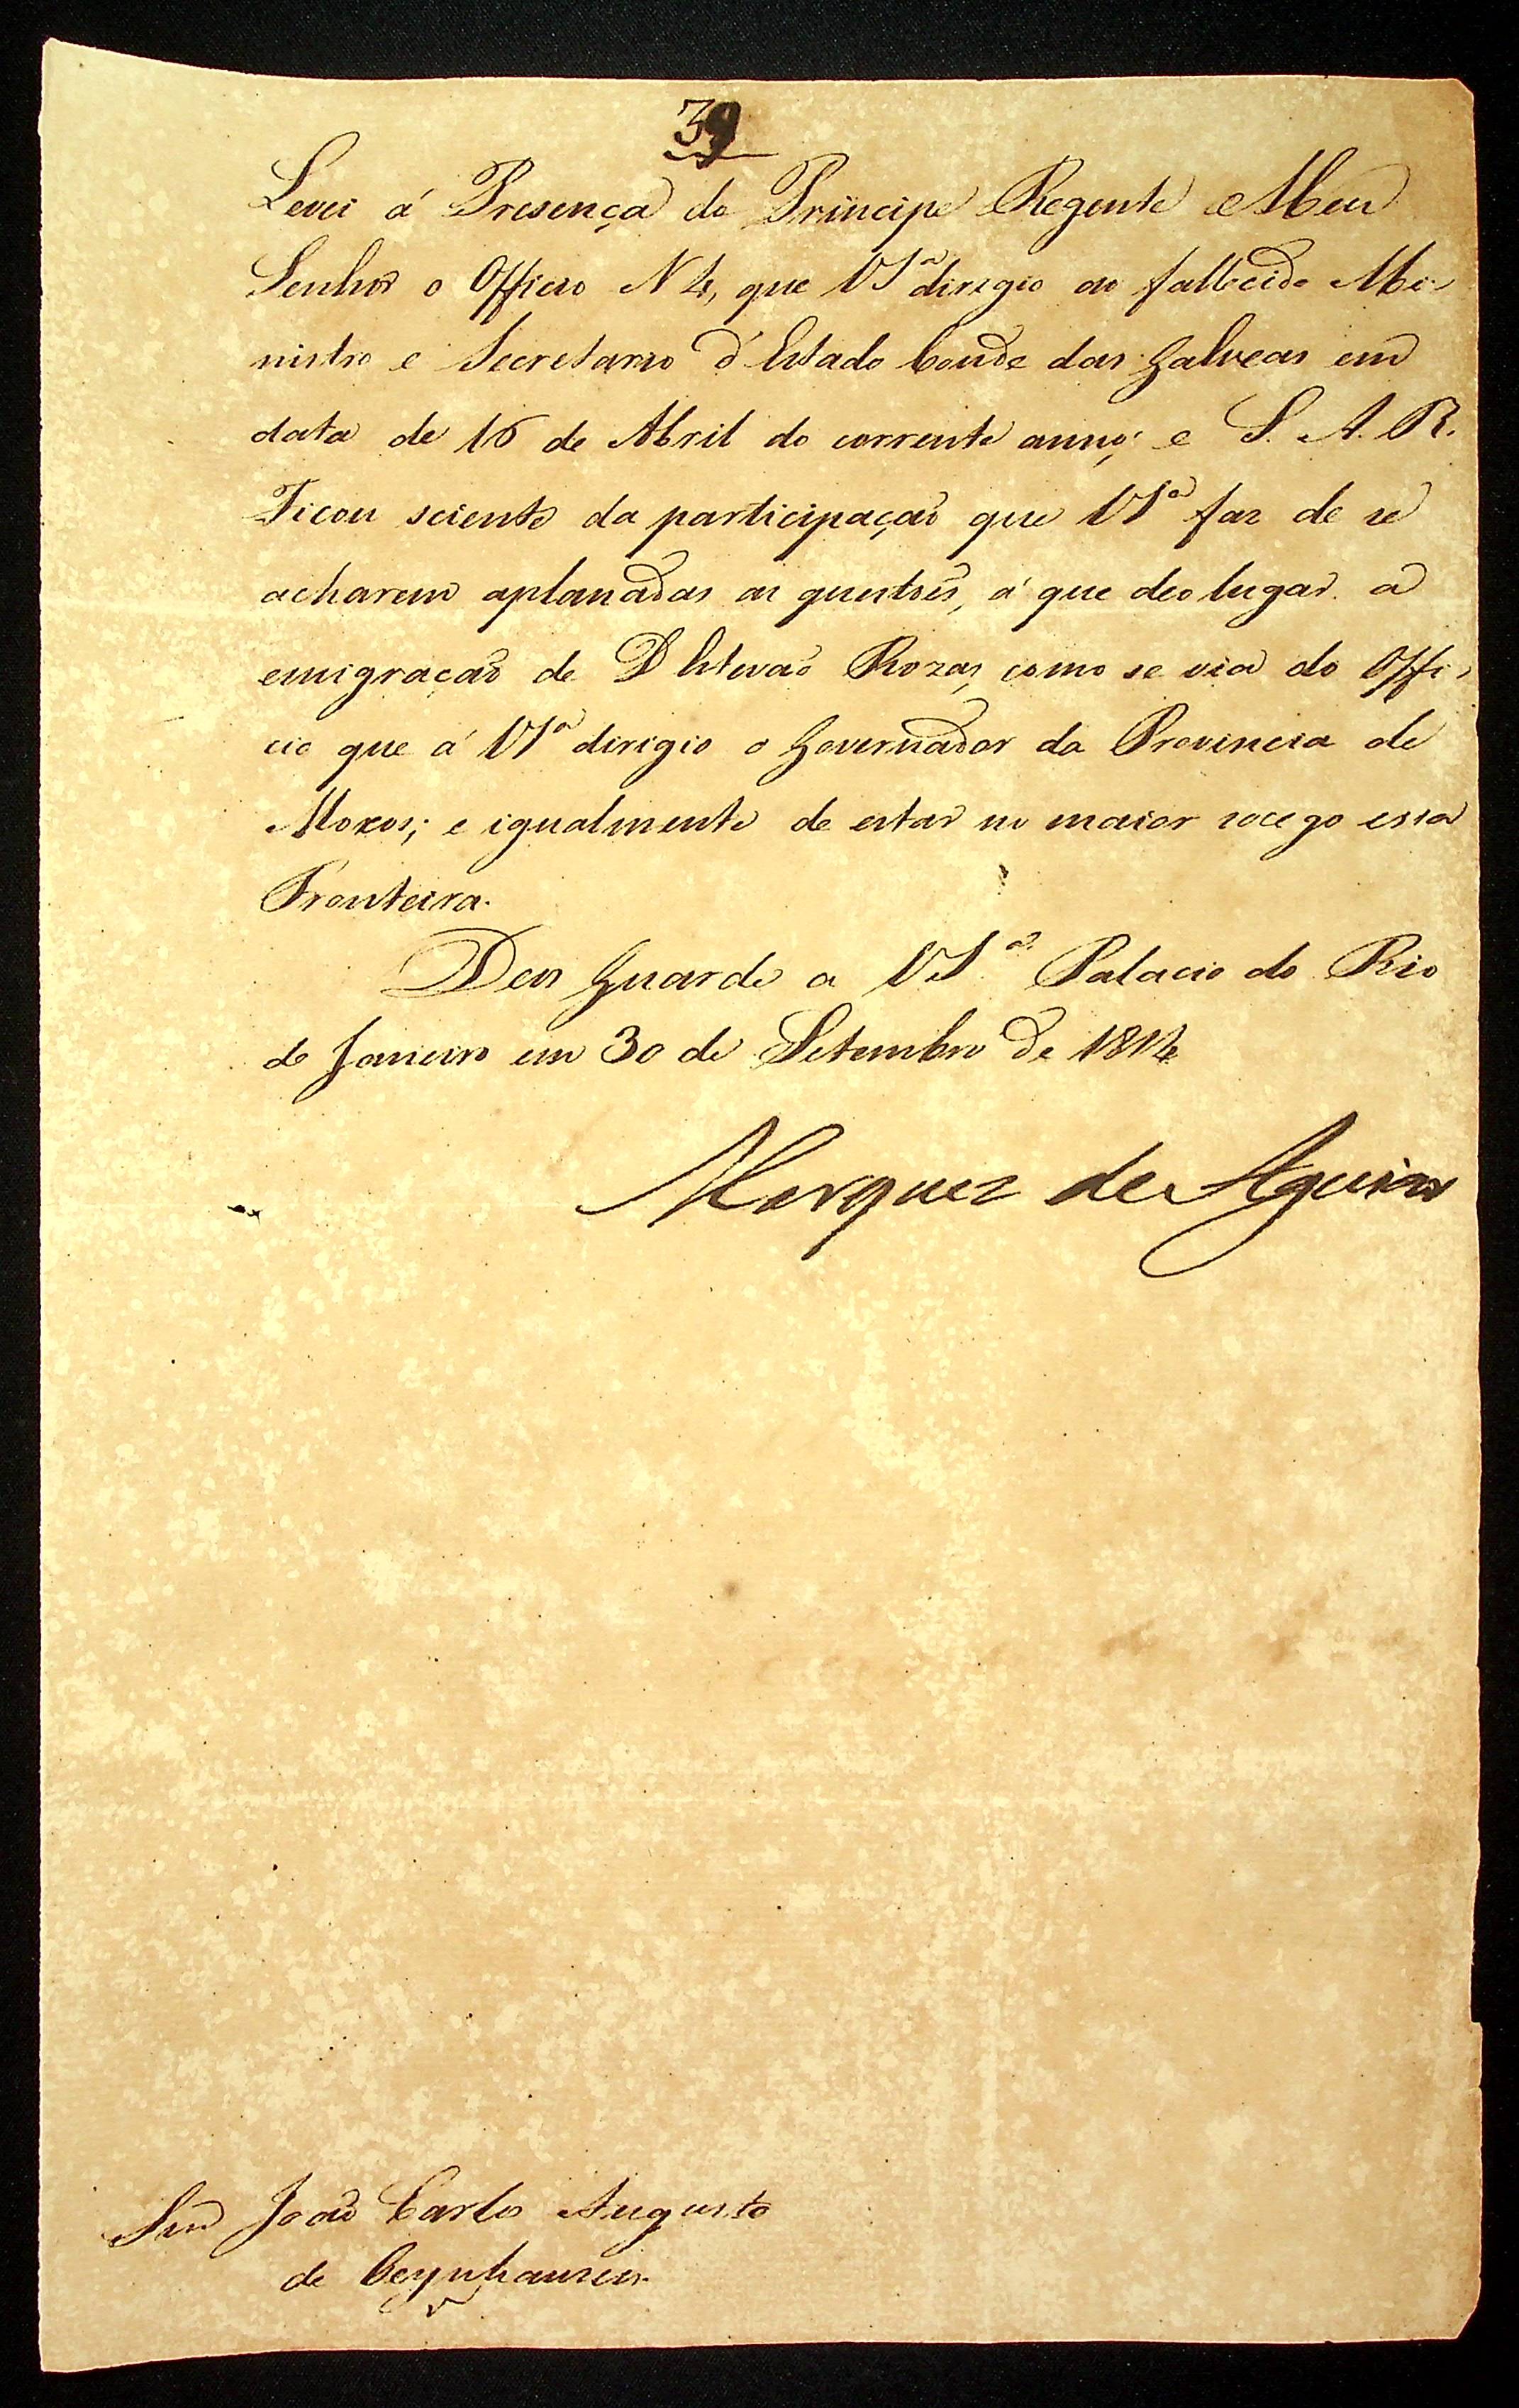 39
Levei á Presença do Principe Regente Meu
Senhor o Officio N 4, que VSª dirigio ao fallecido Mi-
nistro e Secretario d'Estado Conde das Galveas em
data de 16 de Abril do corrente anno; e S. A. R.
Ficou sciente da participação que VSª faz de se
acharem aplanadas as questões, á que deo lugar a
emigração de D Estevaõ Rozas, como se via do Offi-
cio que á VSª dirigio o Governador da Provincia de
Moxos; e igualmente de estar no maior socego essa
Fronteira.
Deos Guarde a VSª Palacio do Rio
de Janeiro em 30 de Setembro de 1814
Marquez de Aguiar
Snr João Carlos Augusto
de Oeynhausen.